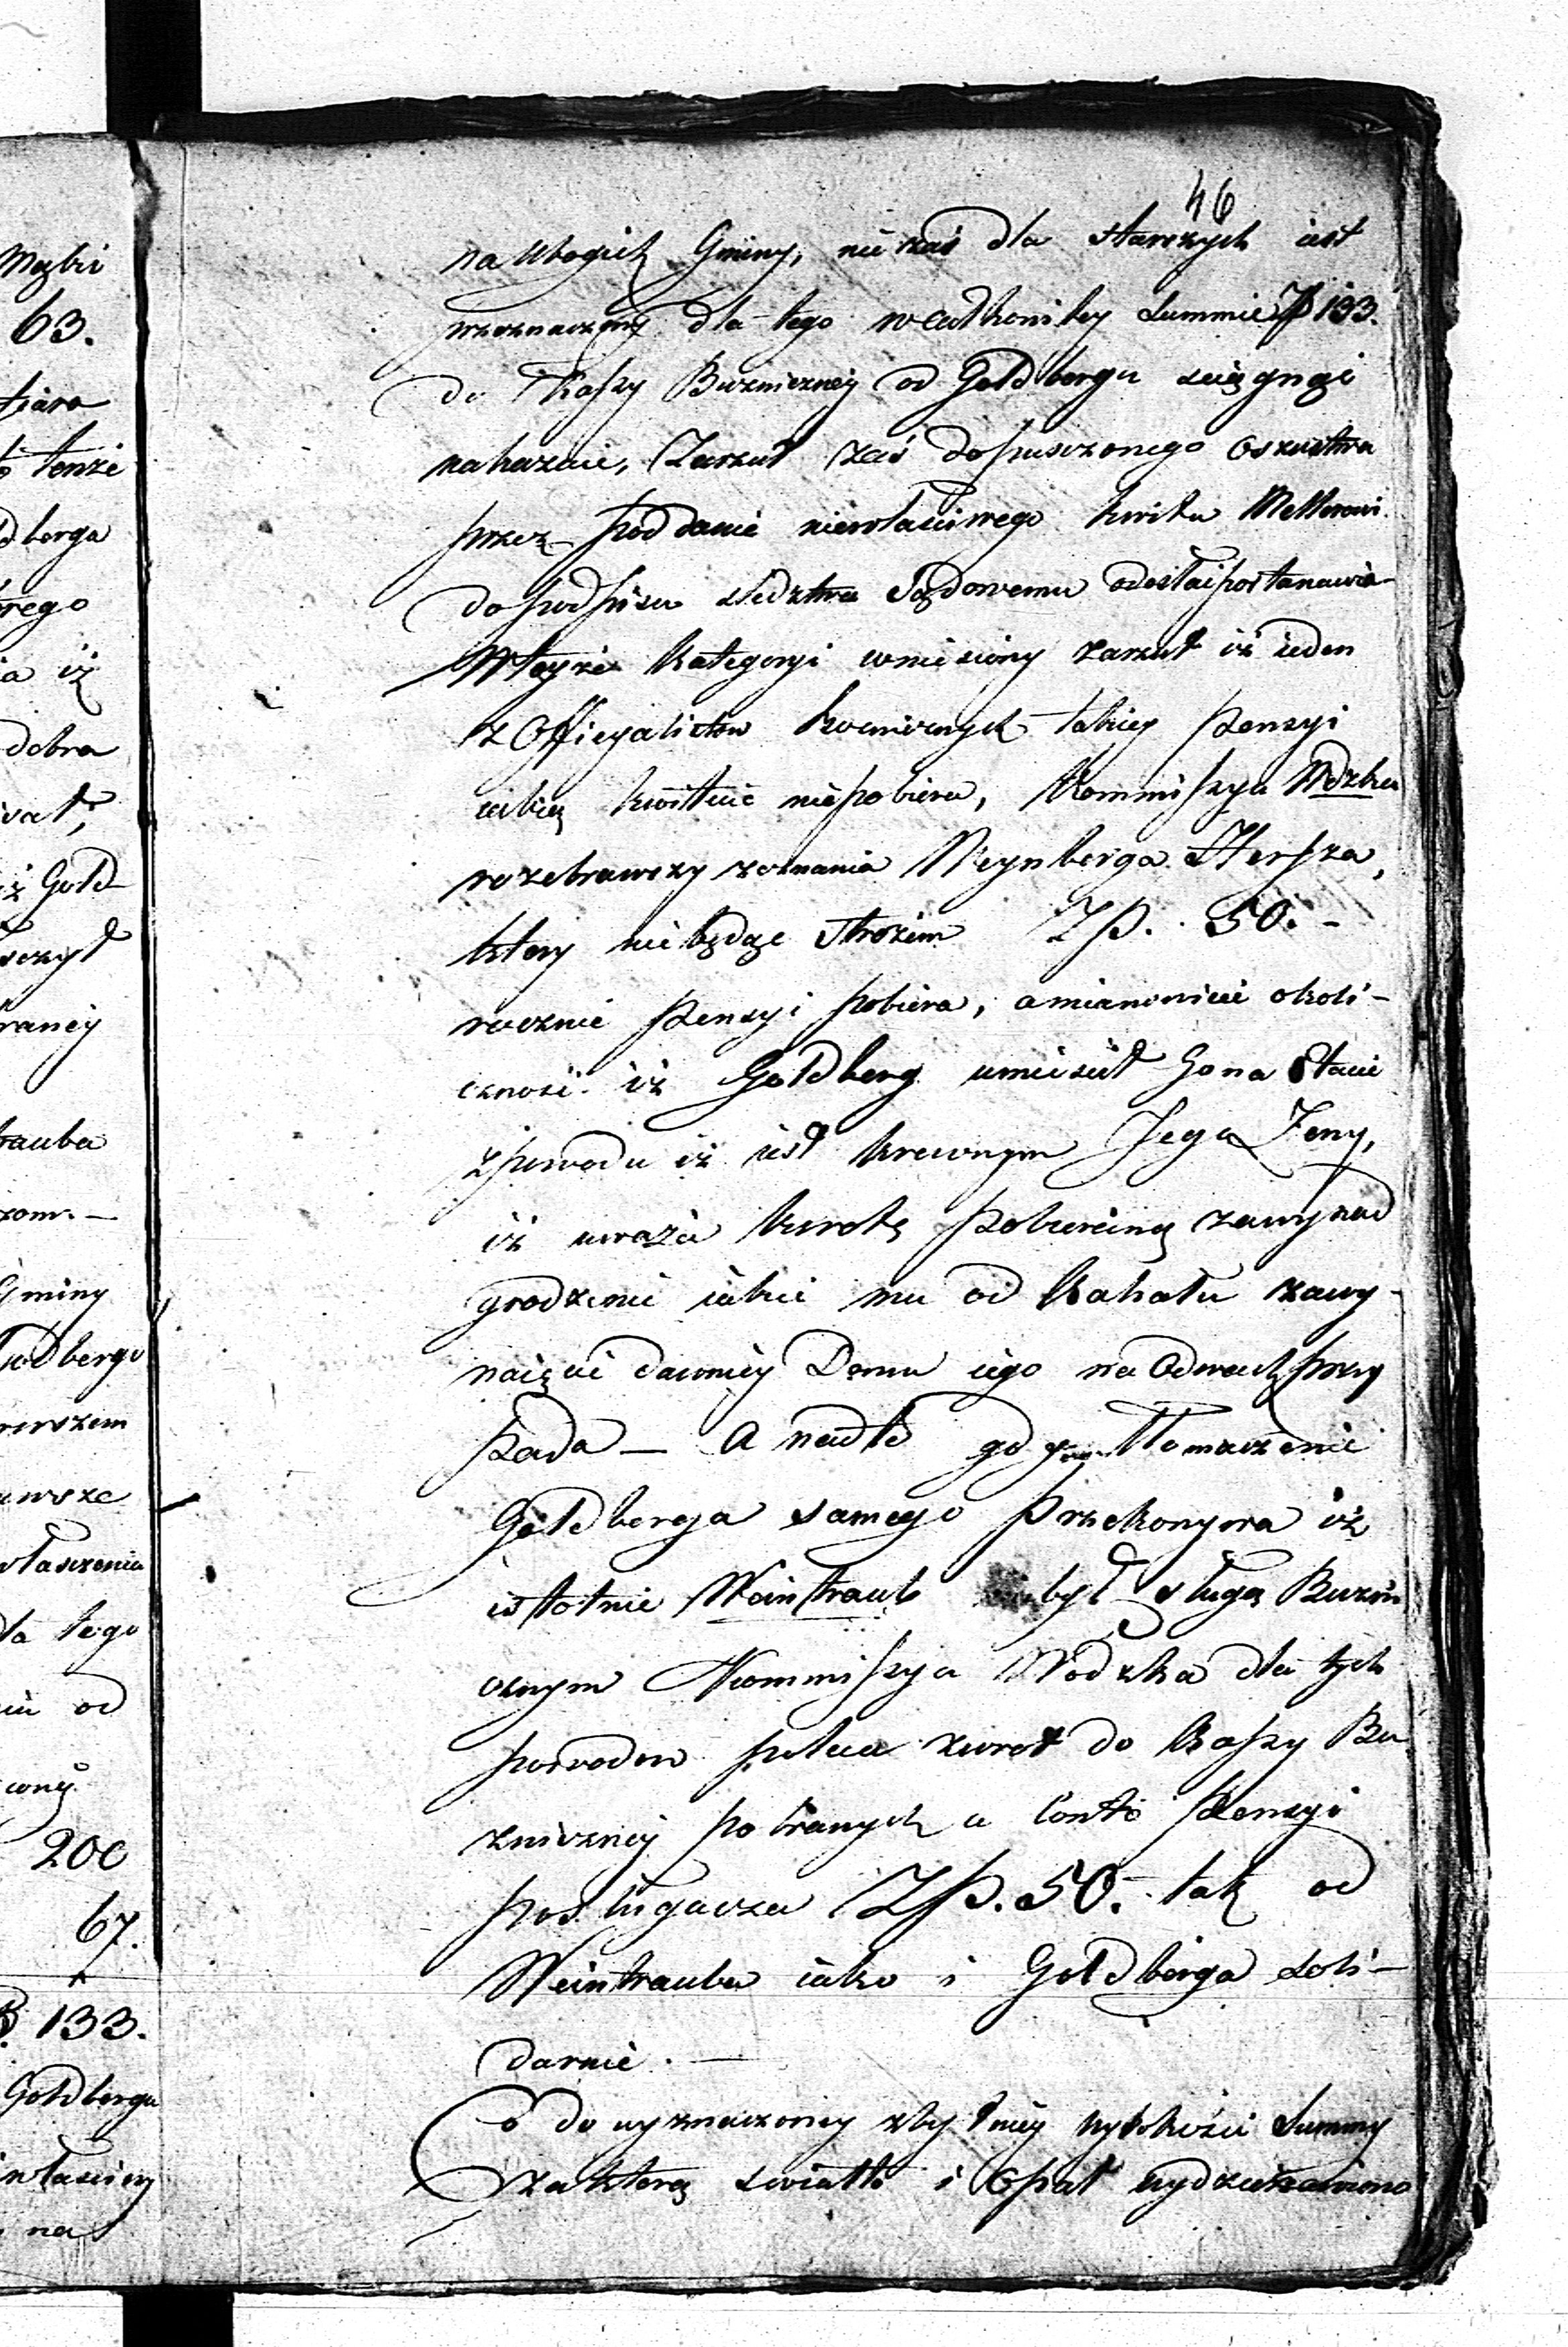 46
na Ubogich Gminy, nie zaś dla starszych iest
wyznaczony dla tego w całkowitey Summie Zp 133.
do Kassy Buzniczney od Goldberga sciągnąć
nakazuie, Zarzut zaś dopuszczonego Oszustwa
przez poddanie niewłaściwego kwitu
do podpisu sledztwu Sądowemu odesłać postanawia
W teyże Kategoryi wniesiony zarzut iż ieden
z Officyalistow Boznicznych takiey Pensyi
iakiey kwituie nie pobiera, Kommissya Wdzka
rozebrawszy zeznania Weynberga Herszka,
ktory nie będąc Strożem Zp. 50.-
rocznie Pensyi pobiera, a mianowicie okoli-
cznosć iż Goldberg umiescił Go na Etacie
z powodu iż iest krewnym Jego Zony,
iż uważa kwotę pobieraną za wynad
grodzenie iakie mu od Kahału za wy-
naięcie dawniey Domu iego na Odwach przy
pada — A nadto gdy Tłomaczenie
Goldberga samego przekonywa iż
istotnie Weintraub był sługą Buzni
cznym Kommissya Wodzka dla tych
powodow poleca zwrot do Kassy Bu
zniczney pobranych a Conto Pensyi
posługacza Zp. 50. tak od
Weintrauba iako i Goldberga soli-
darnie. —
Co do wyznaczoney zbytniey wysokości Summy
za ktorą swiatło i Opał wydzierżawiono
Gold
Goldberga
dobra
tenże
63.
200
67.
133.